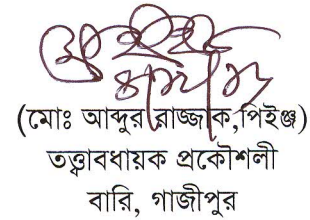 (মোঃ আব্দুর রাজ্জাক,পিইঞ্জ)
তত্ত্বাবধায়ক প্রকৌশলী
বারি, গাজীপুর